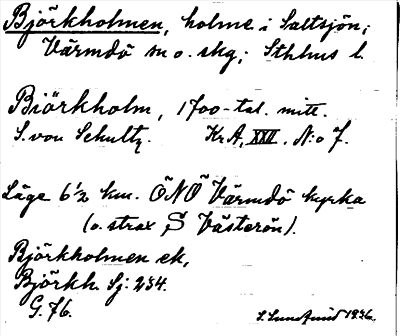 Björkholmen, holme i Saltsjön;
Värmdö sn o. skg; Sthlms l.
Biörkholm, 1700-tal. mitt.
S. von Schultz. Kr A, XXII. N:o 7.
Läge 6 1/2 km. ÖNÖ Värmdö kyrka
(o. strax S Västerön).
Björkholmen ek,
Björkh. Sj: 234.
G. 76.
S. Lundquist 1936.